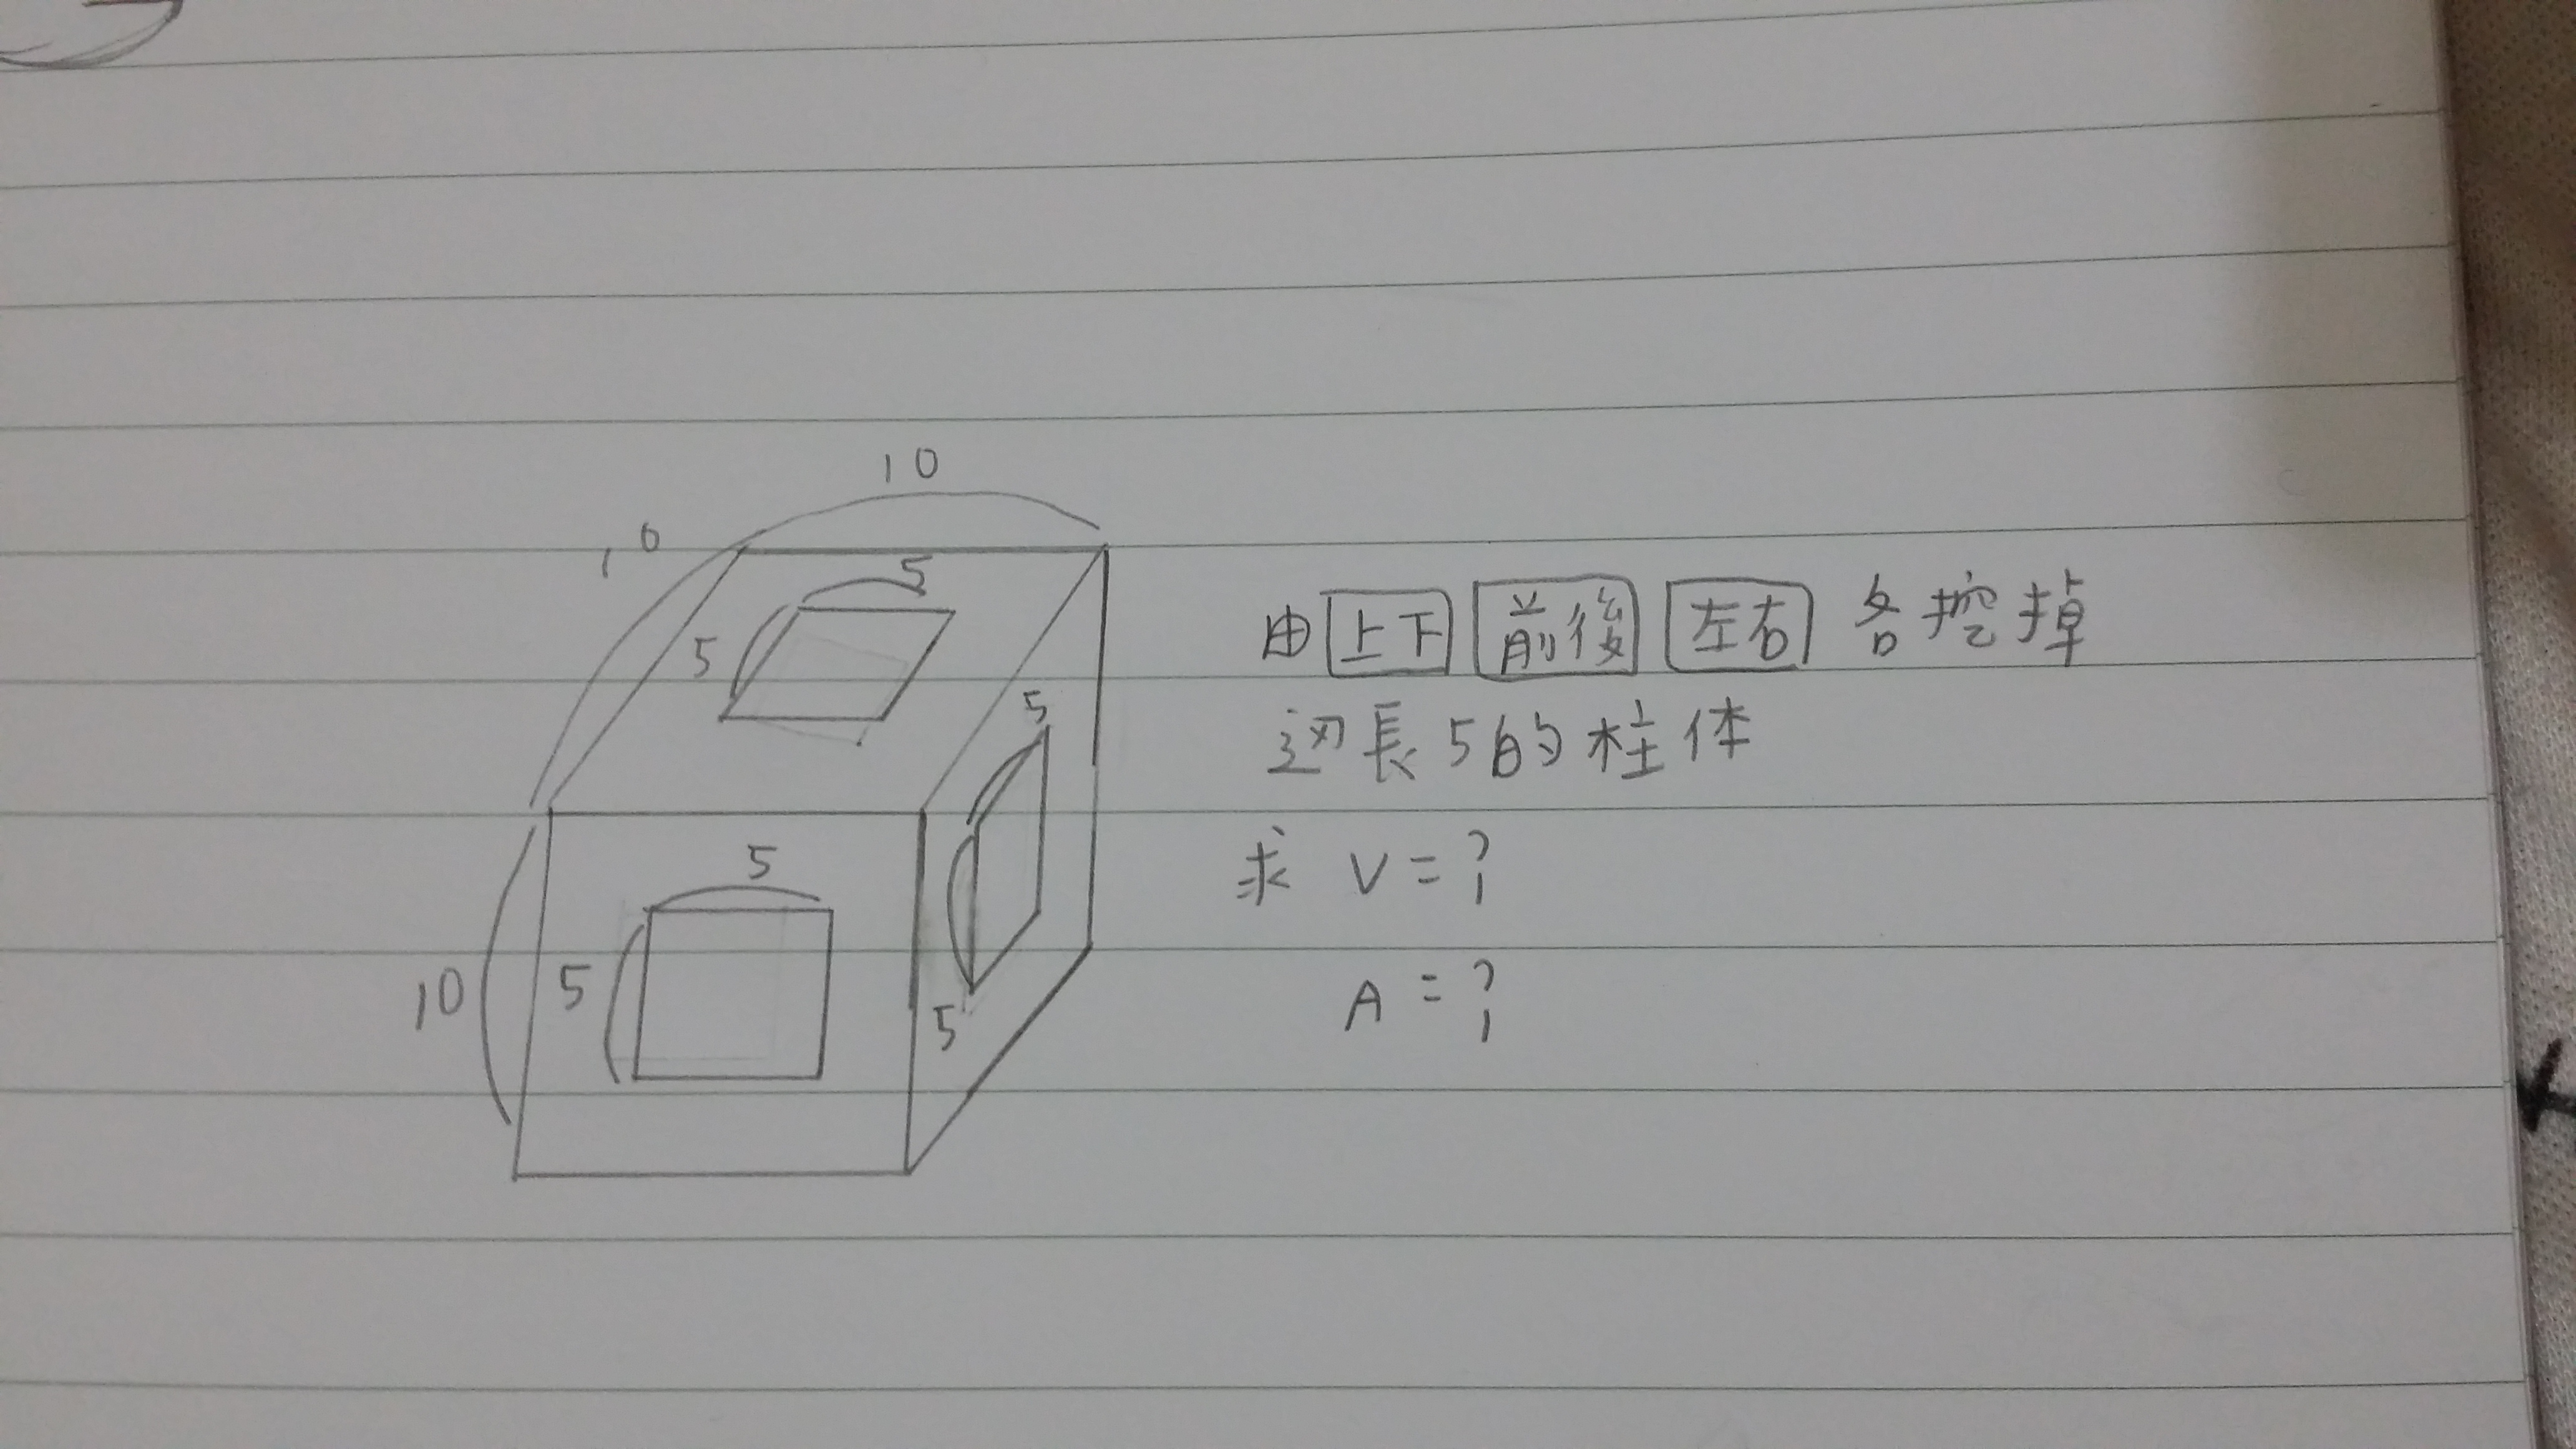 10
10
5
5
5
5
5
5
10
由上下前後左右各挖掉
边長5的柱体
求 V=?
A=?